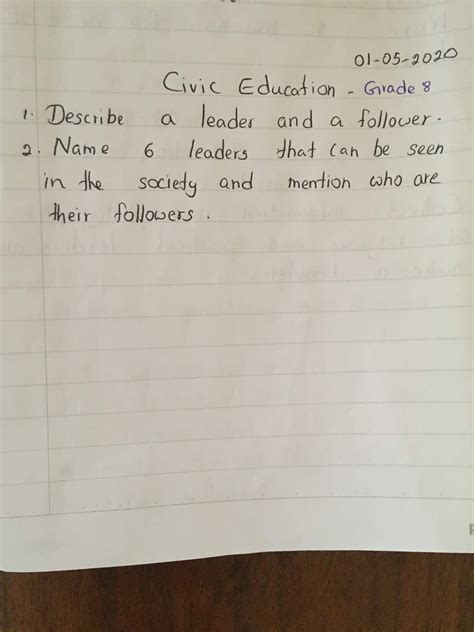 01-05-2020
Civic Education - Grade 8
1. Describe a leader and a follower.
2. Name 6 leaders that can be seen
in the society and mention who are
their followers.